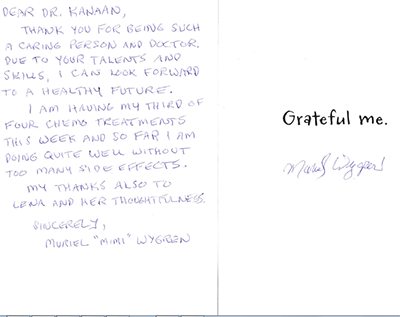 DEAR DR. KANAAN,
THANK YOU FOR BEING SUCH
A CARING PERSON AND DOCTOR.
DUE TO YOUR TALENTS AND
SKILLS, I CAN LOOK FORWARD
TO A HEALTHY FUTURE.
I AM HAVING MY THIRD OF
FOUR CHEMO TREATMENTS
THIS WEEK AND SO FAR I AM
DOING QUITE WELL WITHOUT
TOO MANY SIDE EFFECTS.
MY THANKS ALSO TO
LENA AND HER THOUGHTFULNESS.
SINCERELY,
MURIEL "MIMI" WYGREN
Grateful me.
Muriel Wygren